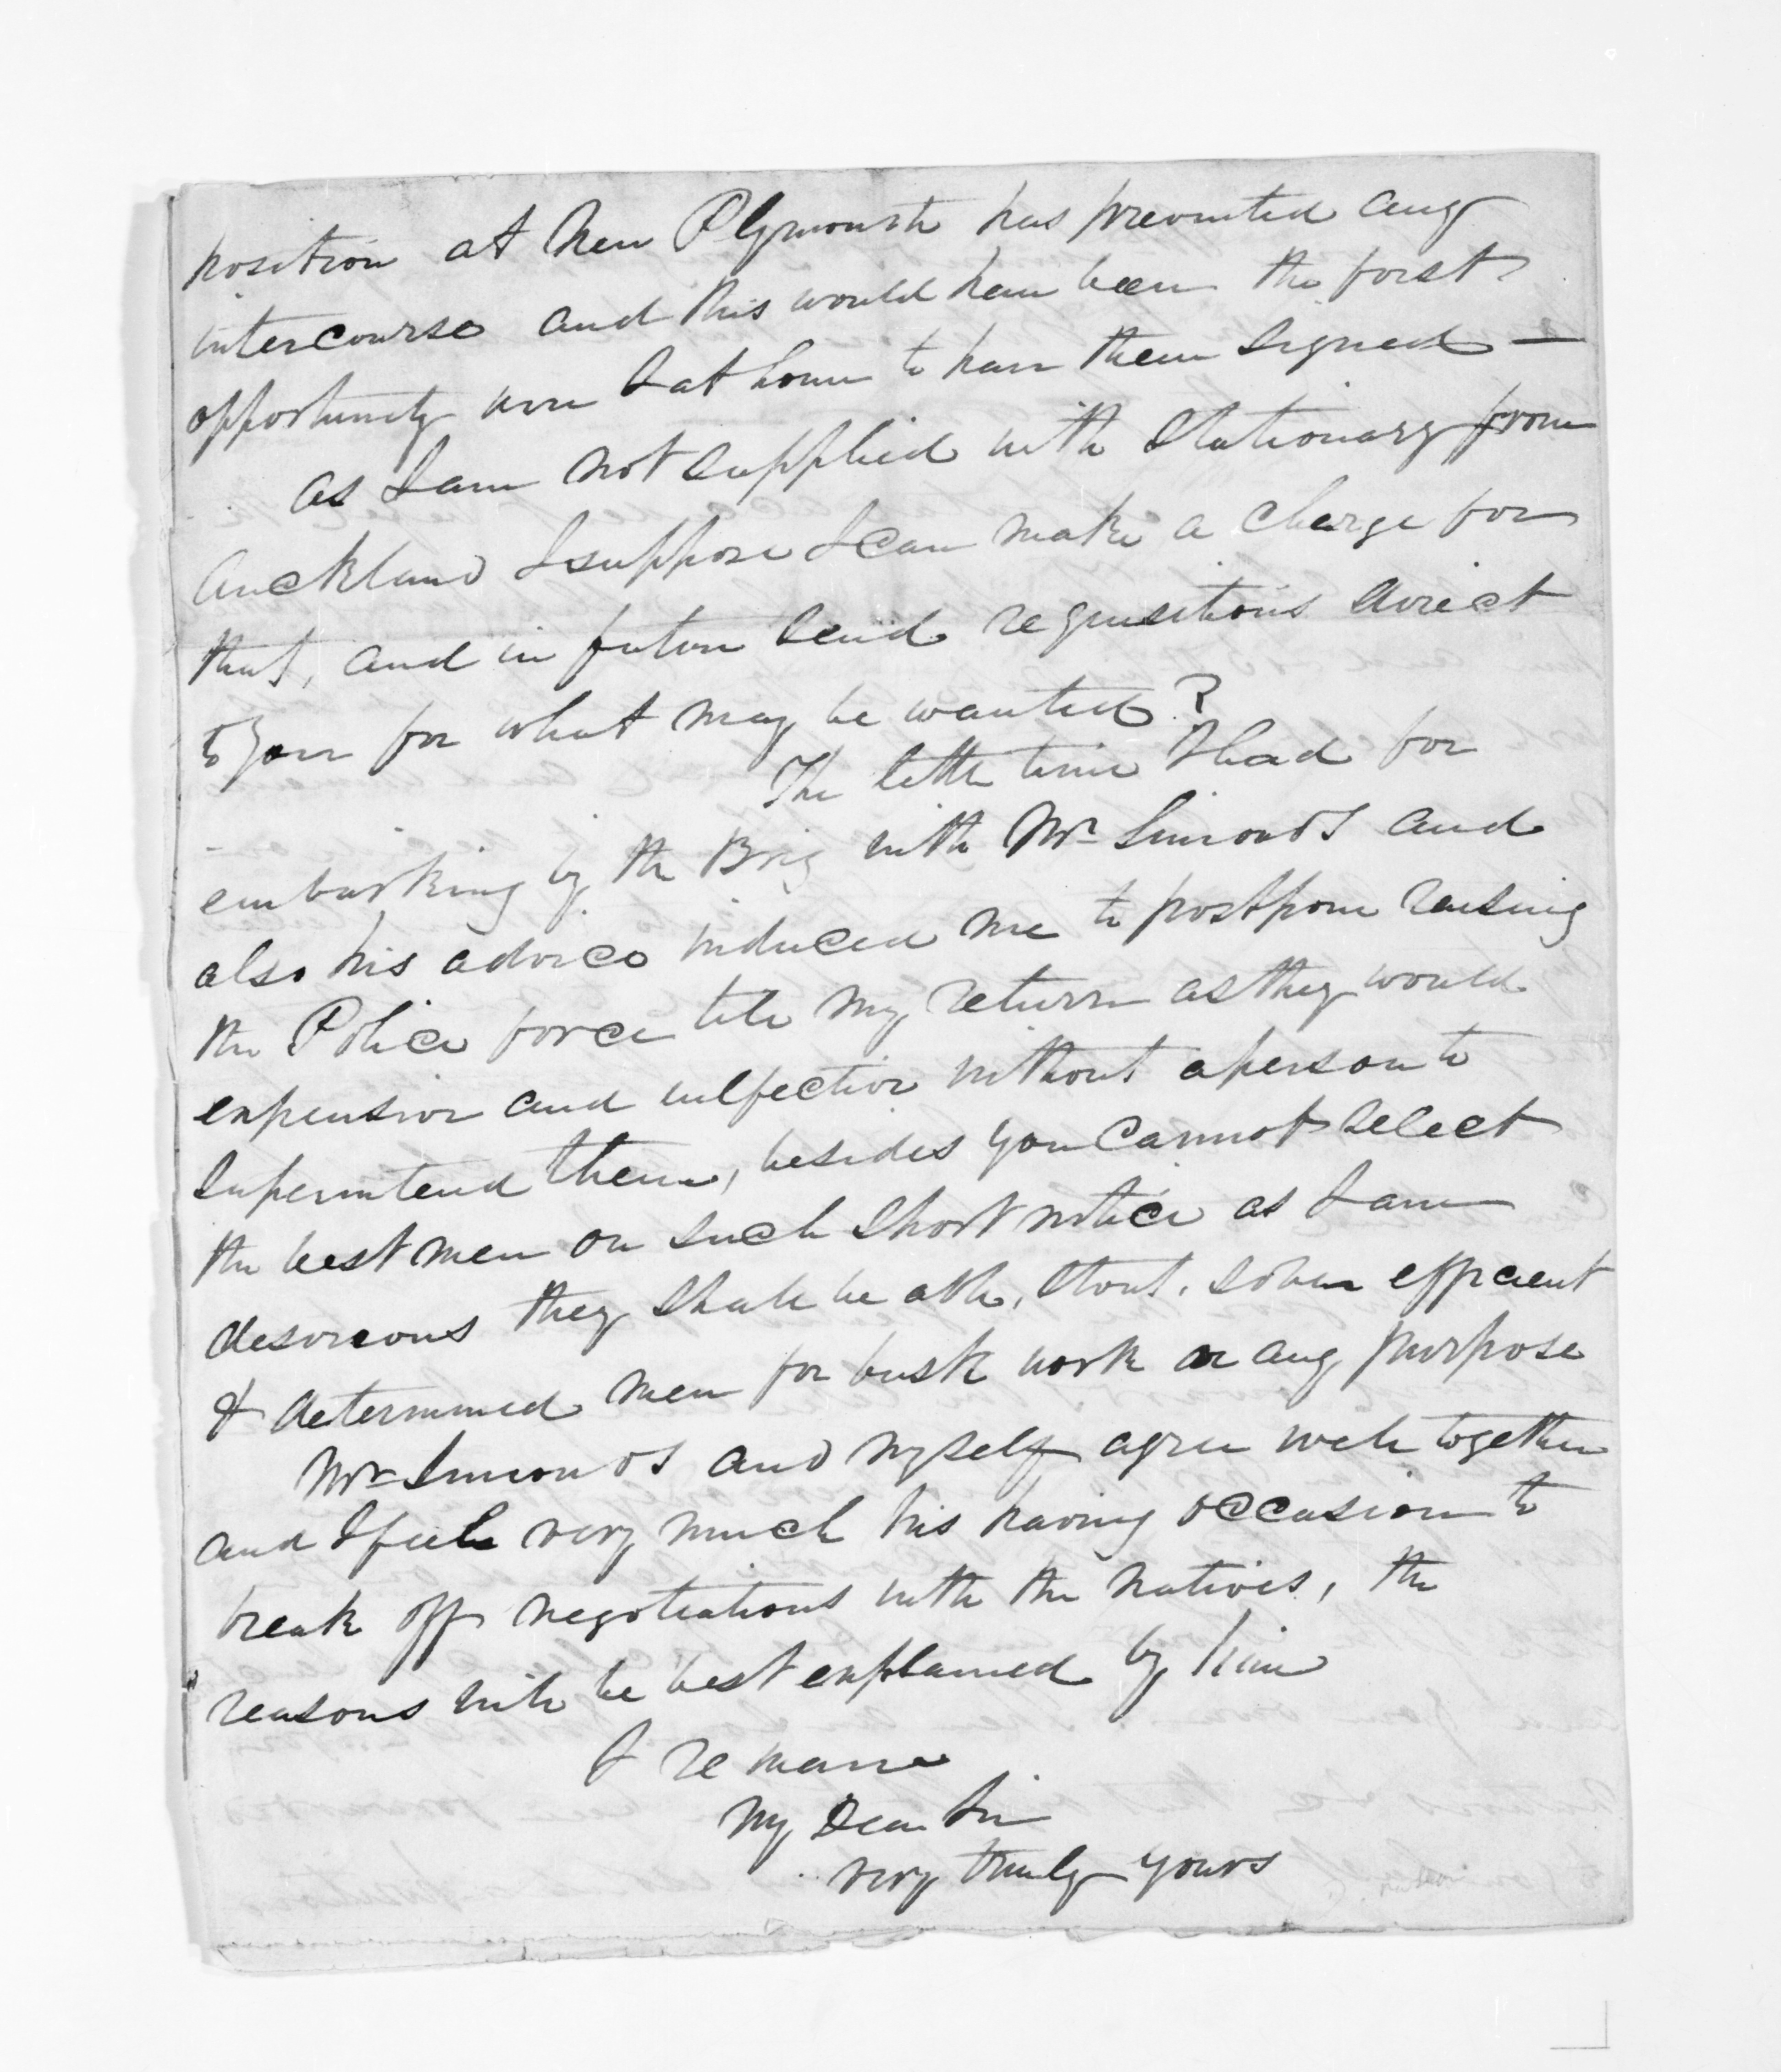 position at New Plymouth has prevented any
intercourse and this would have been the first
opportunity were I at home to have them signed —
as I am not supplied with stationary from
Auckland I suppose I can make a charge for
that, and in future send requisitions direct
to you for what may be wanted?
The little time I had for
embarking by the Brig with Mr Simonds and
also his advice induced me to postpone raising
the Police force till my return as they would
expensive and uneffective without a person to
superintend them, besides you cannot select
the best men on such short notice as I am
desireous they shall be able, stout, sober efficient
& determined men for bush work or any purpose
Mr Simonds and myself agree well together
and I feel very much his having occasion to
break off negotiations with the natives, the
reasons will be best explained by him
I remain
My Dear Sir
very truly yours